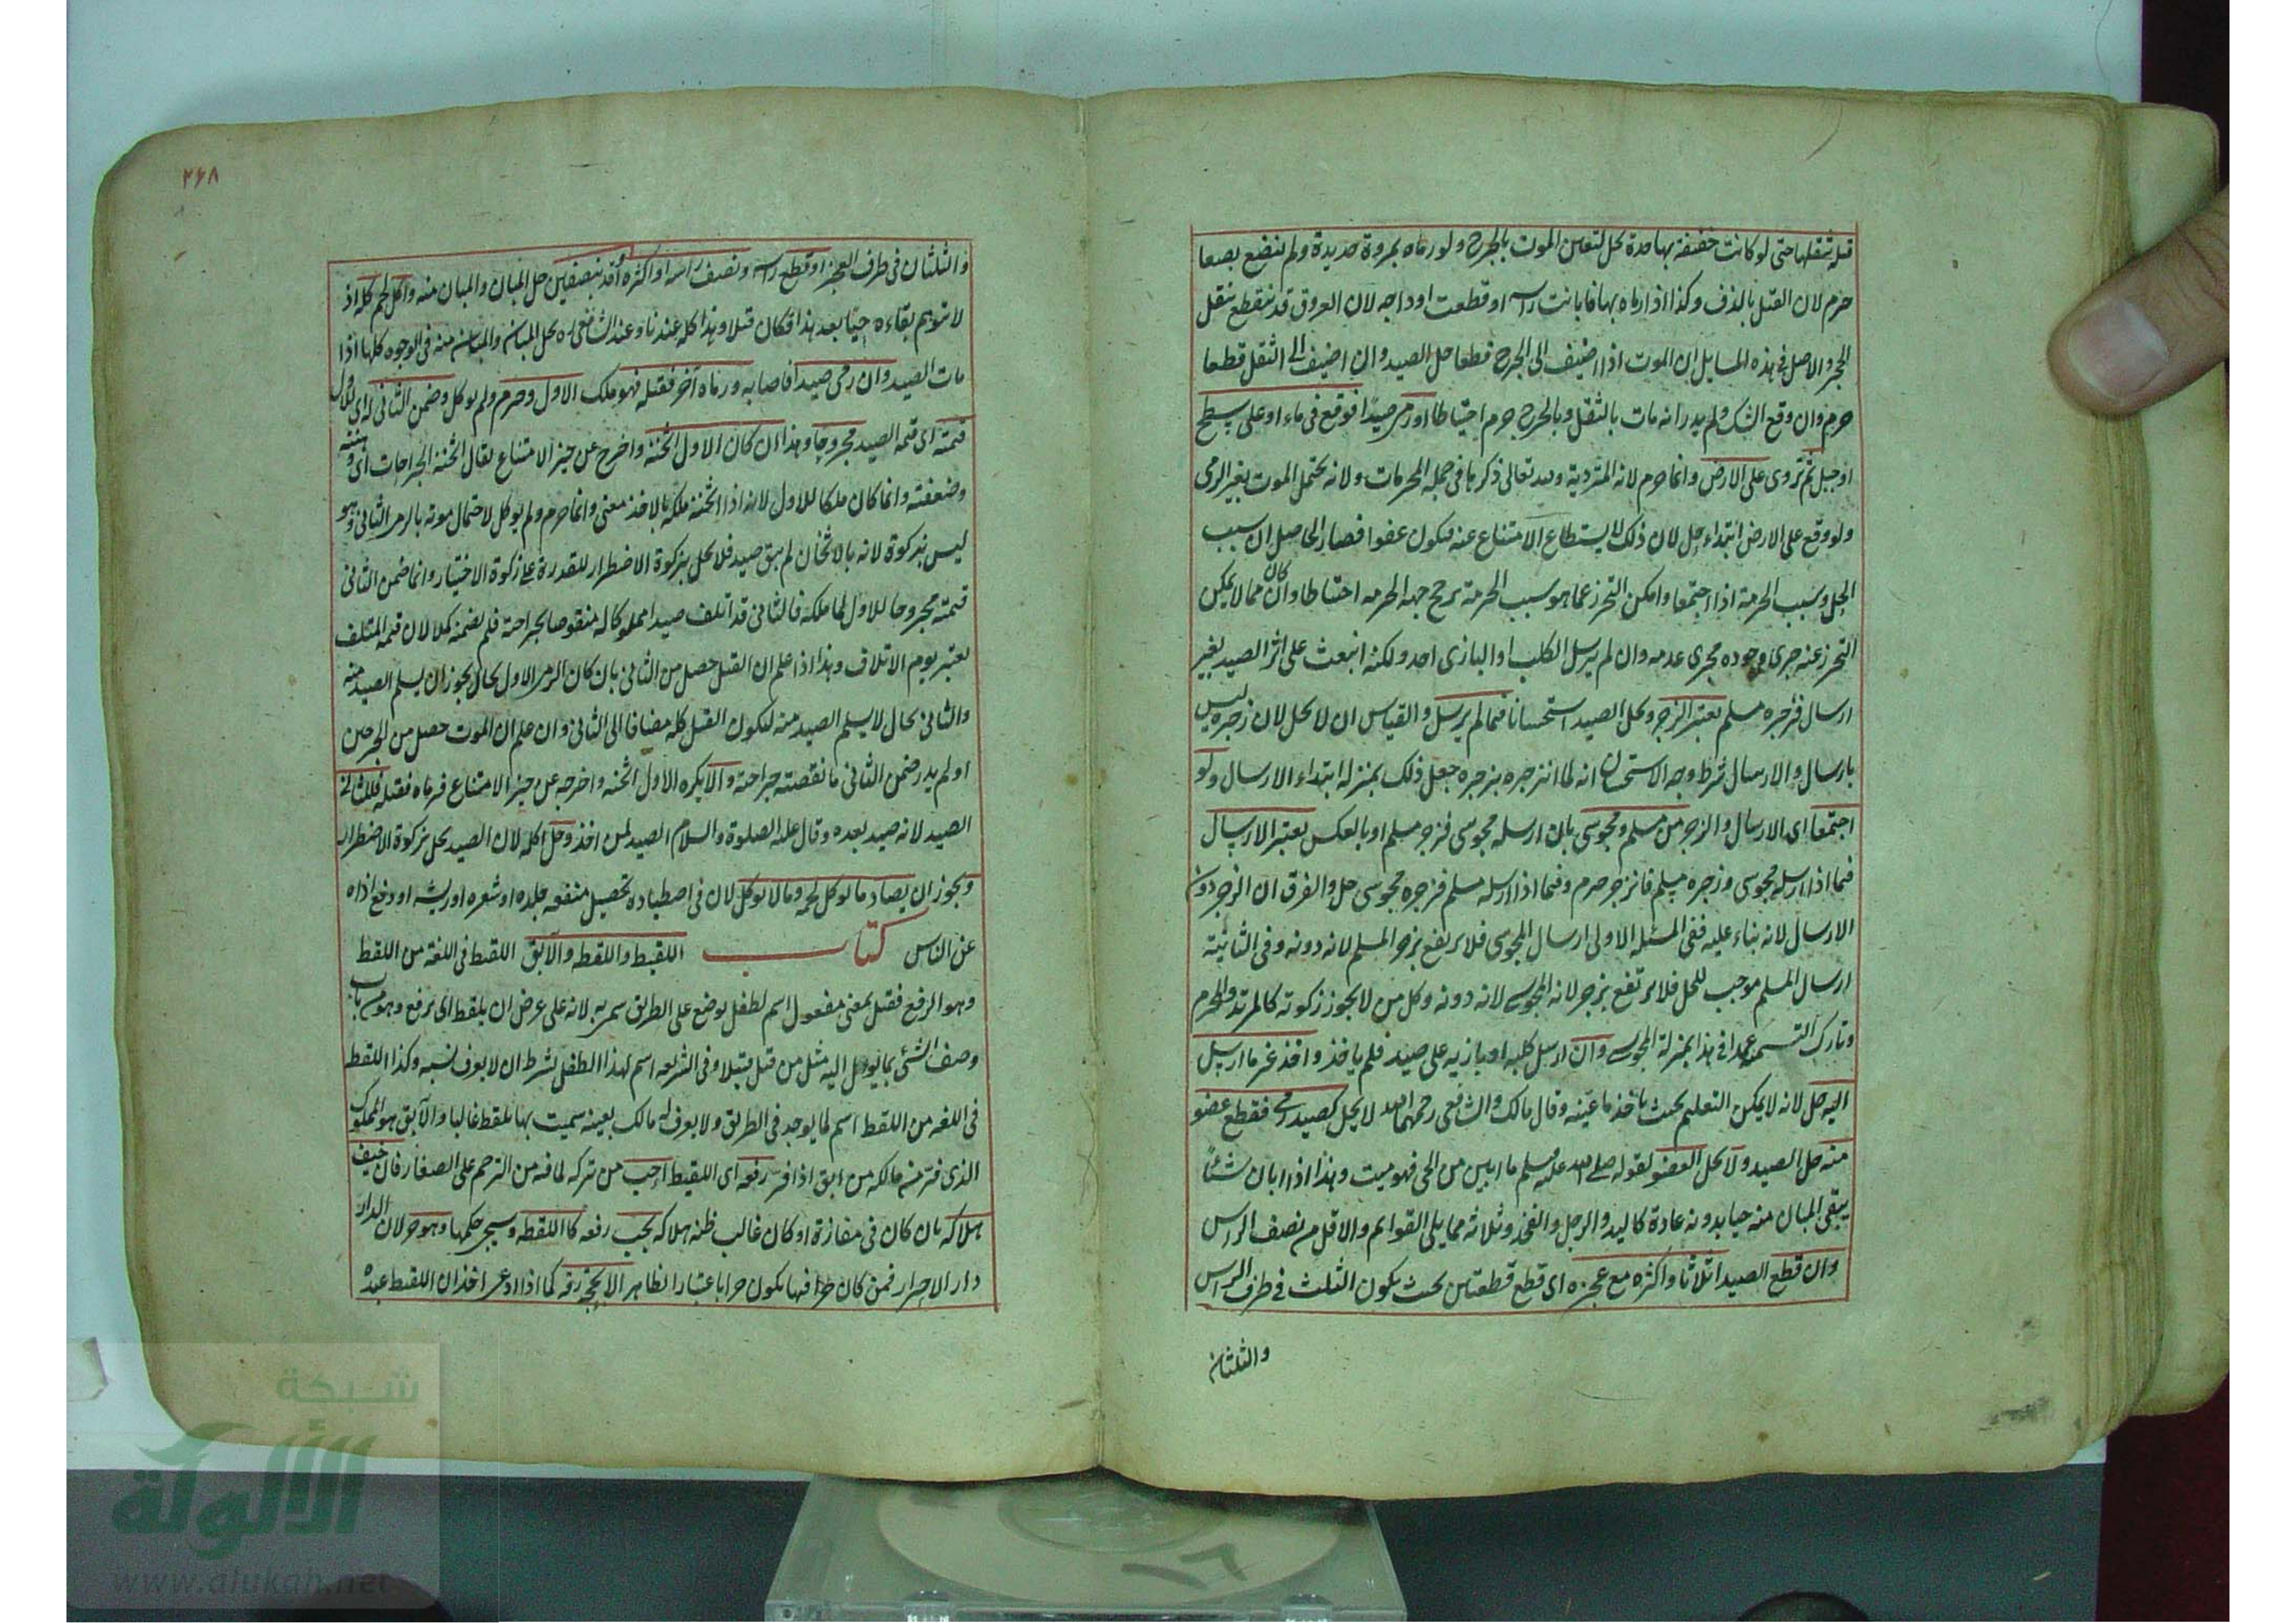 قتله بثقلها حتى لو كانت خفيفة بها حدة يحل لتعين الموت بالجرح ولو رماه بمروة حديدة ولم تبضع بضعا
حرم لان القتل بالدف وكذا اذا رماه بها فابانت راسه او قطعت اوداجه لان العروق قد تنقطع بثقل
الحجر والاصل في هذه المسايل ان الموت اذا اضيف الى الجرح قطعا حل الصيد وان اضيف الى الثقل قطعا
حرم وان وقع الشك ولم يدر انه مات بالثقل وبالجرح حرم احتياطا او رمى صيدا فوقع في ماء او على سطح
او جبل ثم تردى على الارض وانما حرم لانه المتردية والله تعالى ذكرها في جملة المحرمات ولانه يحتمل الموت بغير الرمى
ولو وقع على الارض ابتداء حل لان ذلك لا يستطاع الامتناع عنه فيكون عفوا فصار الحاصل ان سبب
الحل وسبب الحرمة اذا اجتمعا وامكن التحرز عما هو سبب الحرمة يرجح جهة الحرمة احتياطا وان كان مما لا يمكن
التحرز عنه جرى وجوده مجرى عدمه وان لم يرسل الكلب او البازى احد ولكنه انبعث على اثر الصيد بغير
ارسال فزجره مسلم يعتبر الزجر ويحل الصيد استحسانا فيما لم يرسل والقياس ان لا يحل لان زجره ليس
بارسال والارسال شرط وجه الاستحسان انه لما انزجر بزجره جعل ذلك بمنزلة ابتداء الارسال ولو
اجتمعا اى الارسال والزجر من مسلم ومجوسى بان ارسله مجوسى فزجر مسلم او بالعكس يعتبر الارسال
فيما اذا ارسله مجوسى وزجره مسلم فانزجر حرم وفيما اذا ارسله مسلم فزجره مجوسى حل والفرق ان الزجر دون
الارسال لانه بناء عليه ففي المسئلة الاولى ارسال المجوسى فلا يرتفع بزجر المسلم لانه دونه وفي الثانية
ارسال المسلم موجب للحل فلا يرتفع بزجر لانه المجوسى لانه دونه وكل من لا يجوز زكوته كالمرتد والمحرم
وتارك التسمية عمدا في هذا بمنزلة المجوسى وان ارسل كلبه او بازيه على صيد فلم ياخذ واخذ غير ما ارسل
اليه حل لانه لا يمكن التعليم بحيث ياخذ ما عينه وقال مالك والشافعى رحمهما الله لا يحل كصيد رمى فقطع عضو
منه حل الصيد ولا يحل العضو لقوله صلى الله عليه وسلم ما ابين من الحى فهو ميت وهذا اذا ابان شيئا
يبقى المبان منه حيا بدونه عادة كاليد والرجل والفخذ وثلاثة مما يلى القوائم والاقل من نصف الراس
وان قطع الصيد اثلاثا واكثره مع عجزه اى قطع قطعتين بحيث يكون الثلث في طرف الراس
والثلثان
٢٦٨
والثلثان في طرف العجز او قطع راسه ونصف راسه او اكثره او قد بنصفين حل المبان والمبان منه واكل لحم كله اذ
لا يتوهم بقاءه حيا بعد هذا فكان قتلا وهذا كله عندنا وعند الشافعى يحل المبان والمبان منه في الوجوه كلها اذا
مات الصيد وان رمى صيدا فاصابه ورماه آخر فقتله فهو ملك الاول وحرم ولم يوكل وضمن الثانى له اى للاول
قيمته اى قيمة الصيد مجروحا وهذا ان كان الاول اثخنه واخرج عن حيز الامتناع يقال اثخنته الجراحات اى وهنته
وضعفته وانما كان ملكا للاول لانه اذا اثخنه ملكه بالاخذ معنى وانما حرم ولم يوكل لاحتمال موته بالرمى الثانى وهو
ليس بزكوة لانه بالاثخان لم يبق صيد فلا يحل بزكوة الاضطرار للقدرة على زكوة الاختيار وانما ضمن الثانى
قيمته مجروحا للاول لما ملكه فالثانى قد اتلف صيدا مملوكا له منقوصا بجراحته فلم يضمنه كملا لان قيمة المتلف
يعتبر يوم الاتلاف وهذا اذا علم ان القتل حصل من الثانى بان كان الرمى الاول بحال يجوز ان يسلم الصيد منه
والثانى بحال لا يسلم الصيد منه ليكون القتل كله مضافا الى الثانى وان علم ان الموت حصل من الجرحين
او لم يدر ضمن الثانى ما نقصته جراحته والا يكره الاول اثخنه واخرجه عن حيز الامتناع فرماه فقتله فللثانى
الصيد لانه صيد بعده وقال عليه الصلوة والسلام الصيد لمن اخذ وحل اكله لان الصيد يحل بزكوة الاضطرار
ويجوز ان يصاد ما يوكل لحمه وما لا يوكل لان في اصطياده تحصيل منفعة جلده او شعره او ريشه او دفع اذاه
عن الناس كتاب اللقيط واللقطه والآبق اللقيط في اللغة من اللقط
وهو الرفع فقيل بمعنى مفعول اسم لطفل يوضع على الطريق سمى به لانه على عرض ان يلقط اى يرفع وهو من باب
وصف الشئ بما يول اليه مثل من قتل قتيلا وفي الشريعه اسم لهذا الطفل بشرط ان لا يعرف نسبه وكذا اللقطه
في اللغه من اللقط اسم لما يوجد في الطريق ولا يعرف له مالك بعينه سميت بها يلقط غالبا والآبق هو المملوك
الذى فر من مالكه من ابق اذا فر رفعه اى اللقيط احب من تركه لما فيه من الترحم على الصغار فان خيف
هلاكه بان كان في مفازة او كان غالب ظنه هلاكه يجب رفعه كاللقطه وسيجئ حكمها وهو حر لان الدار
دار الاحرار فمن كان فيها يكون حرا باعتبار الظاهر الا بحجة رقه كما اذا ادعى احد ان اللقيط عبده
شبكة
الألوكة
www.alukah.net